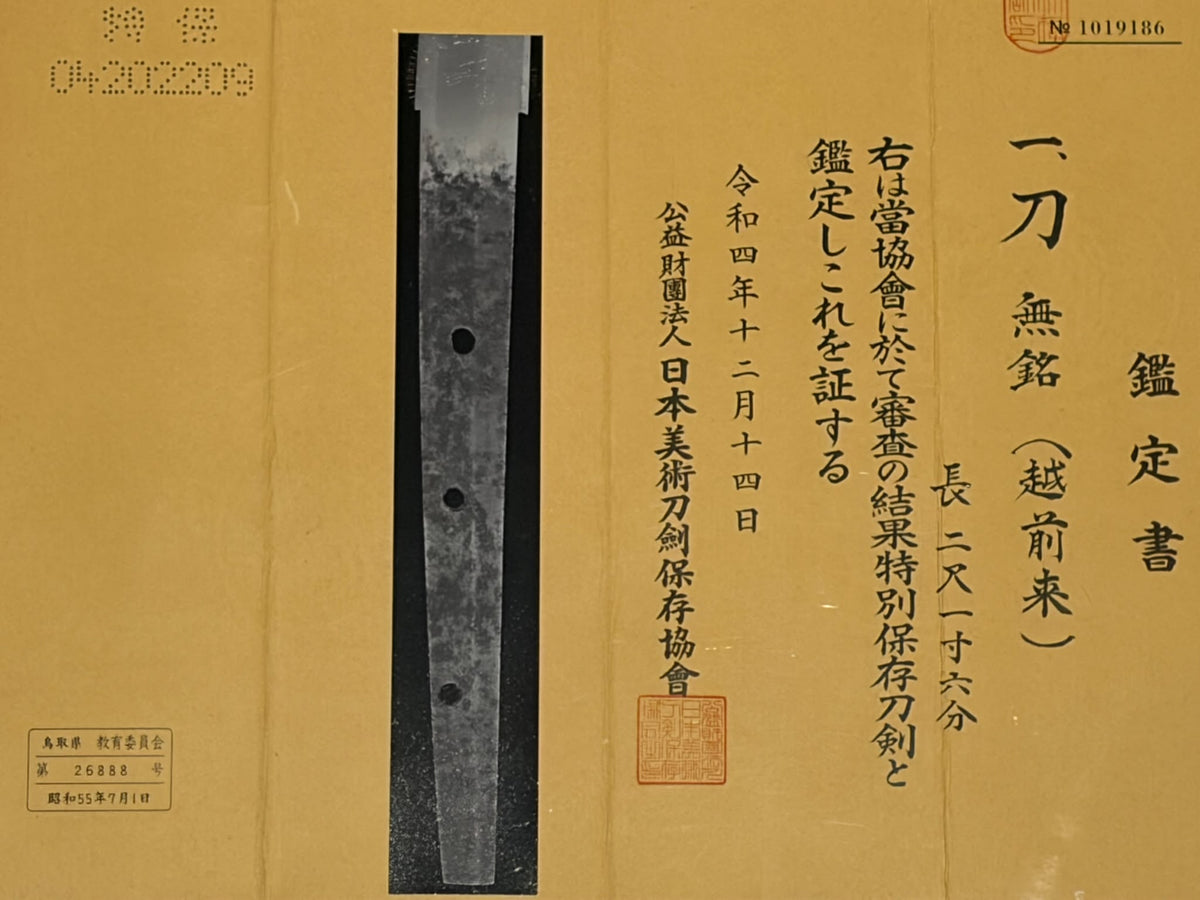 № 1019186
鑑定書
一、刀 無銘（越前来）
長 二尺一寸六分
右は當協會に於て審査の結果特別保存刀剣と
鑑定しこれを証する
令和四年十二月十四日
公益財團法人 日本美術刀劍保存協會
特保
04202209
鳥取県 教育委員会
第 26888 号
昭和55年7月1日